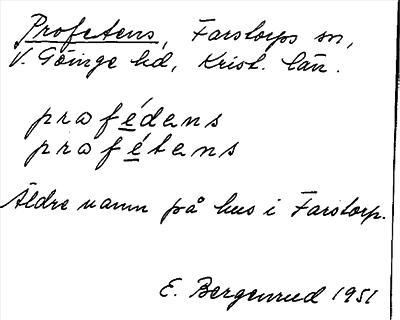 Profetens, Farstorps sn,
V. Göinge hd, Krist. län.
prafédens
prafétens
Äldre namn på hus i Farstorp.
E. Bergenrud 1951